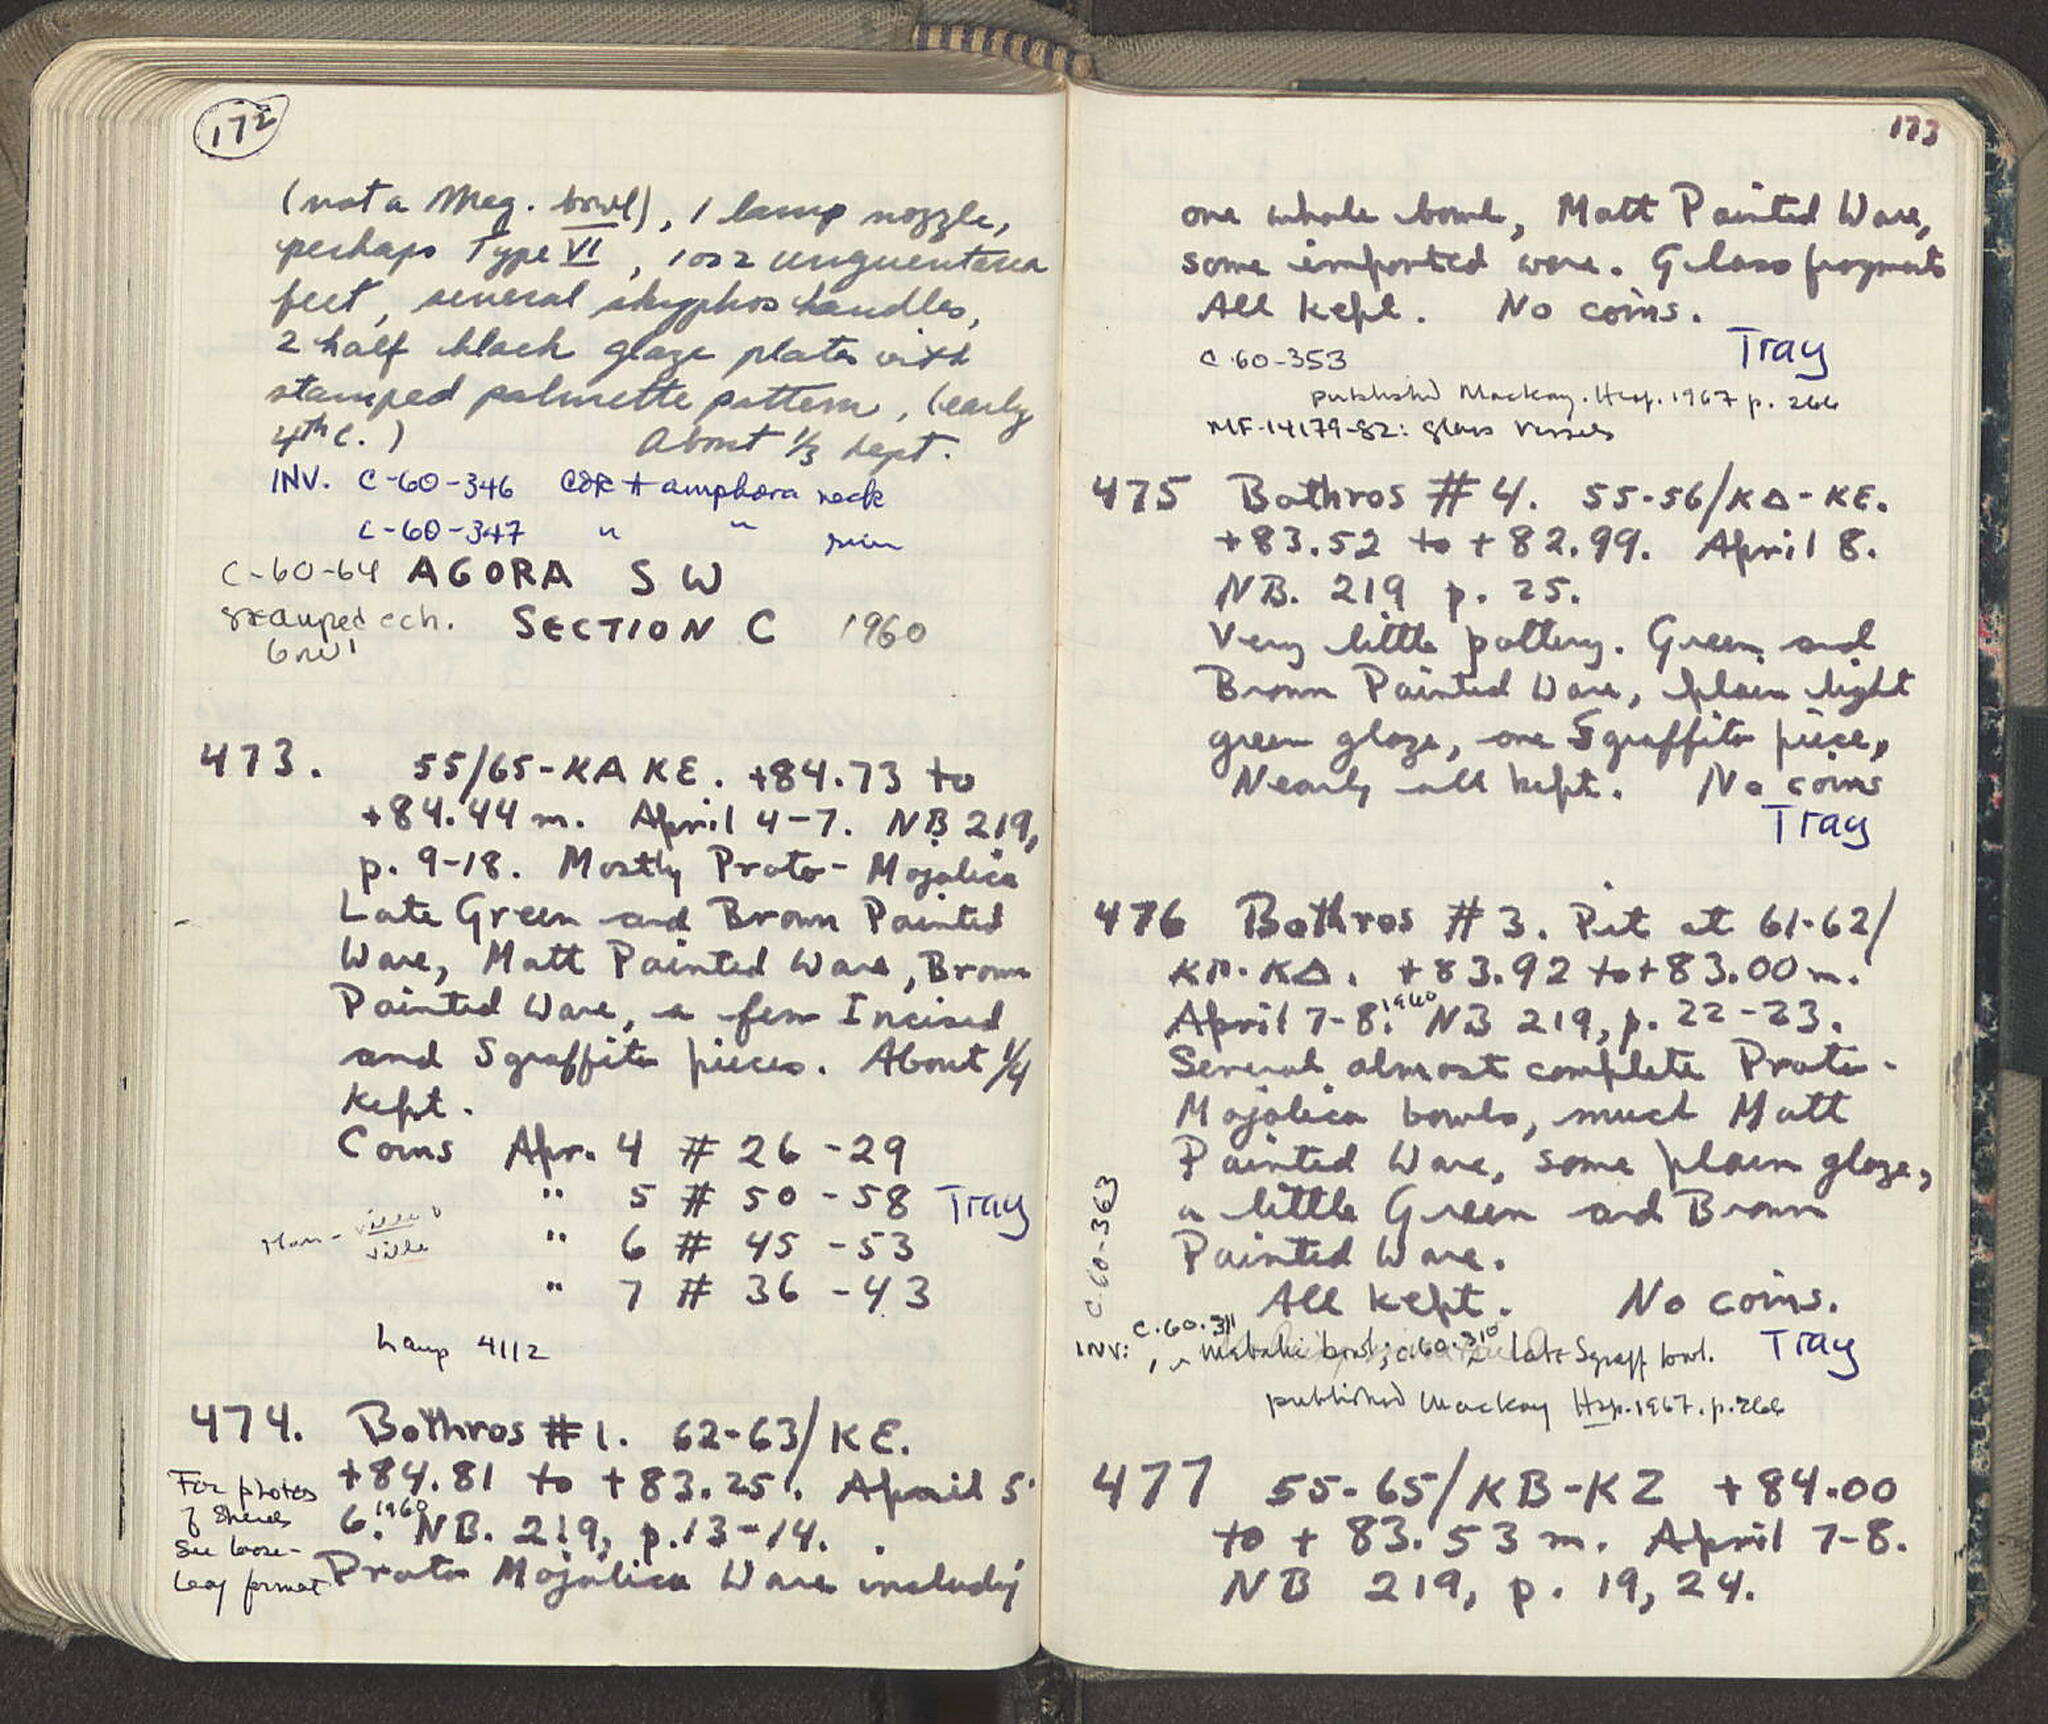 172
(not a Meg. bowl), 1 lamp nozzle,
perhaps Type VI, 1 or 2 unguentaria
feet, several skyphos handles,
2 half black glaze plates with
stamped palmette pattern, (early
4th c.) About 1/3 kept.
INV. C-60-346 Cor + amphora neck
C-60-347 " " rim
C-60-64 AGORA S W
stamped ech. SECTION C 1960
bowl
473. 55/65-KA KE. +84.73 to
+84.44 m. April 4-7. NB 219,
p. 9-18. Mostly Proto-Majolica
Late Green and Brown Painted
Ware, Matt Painted Ware, Brown
Painted Ware, a few Incised
and Sgraffito pieces. About 1/4
kept.
Coins Apr. 4 # 26 - 29
" 5 # 50 - 58 Tray
" 6 # 45 - 53
" 7 # 36 - 43
Lamp 4112
474. Bothros #1. 62-63/KE.
+84.81 to +83.25. April 5-
6. 1960 NB. 219, p. 13-14.
Proto Majolica Ware including
For photos
of sherds
See loose-
leaf format
173
one whole bowl, Matt Painted Ware,
some imported ware. Glass fragments
All kept. No coins.
Tray
C-60-353
published Mackay. Hesp. 1967 p. 266
MF-14179-82: glass vessels
475 Bothros # 4. 55-56/KΔ-KE.
+83.52 to +82.99. April 8.
NB. 219 p. 25.
Very little pottery. Green and
Brown Painted Ware, plain light
green glaze, one Sgraffito piece,
Nearly all kept. No coins
Tray
476 Bothros # 3. Pit at 61-62/
KΓ-KΔ. +83.92 to +83.00 m.
April 7-8. 1960 NB 219, p. 22-23.
Several almost complete Proto-
Majolica bowls, much Matt
Painted Ware, some plain glaze,
a little Green and Brown
Painted Ware.
All kept. No coins.
C-60-363
INV: C.60.311 bowl; C.60.310 Late Sgraff bowl. Tray
published Mackay Hesp. 1967. p. 266
477 55-65/KB-KZ +84.00
to + 83.53 m. April 7-8.
NB 219, p. 19, 24.